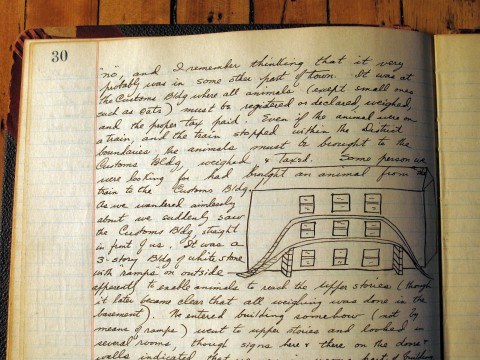 30
"no", and I remember thinking that it very
probably was in some other part of town. It was at
the Customs Bldg where all animals (except small ones
such as cats) must be registered or declared, weighed,
and the proper tax paid. Even if the animal were on
a train, and the train stopped within the District
boundaries the animals must be brought to the
Customs Bldg, weighed & taxed. Some person we
were looking for had brought an animal from the
train to the Customs Bldg.
As we wandered aimlessly
about we suddenly saw
the Customs Bldg straight
in front of us. It was a
3-story Bldg of white stone
with "ramps" on outside
apparently to enable animals to reach the upper stories (though
it later became clear that all weighing was done in the
basement). We entered building somehow (not by
means of ramps) went to upper stories and looked in
several rooms, though signs here & there on the doors &
walls indicated that